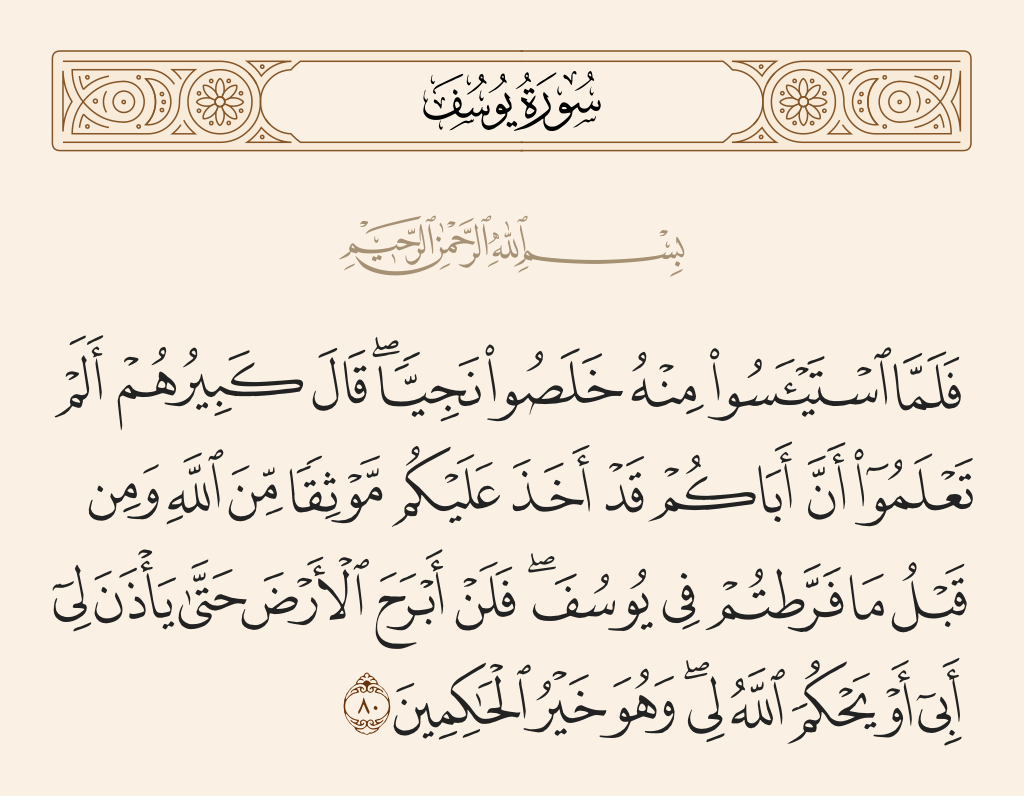 سُورَةُ يُوسُفَ
بِسْمِ ٱللَّهِ ٱلرَّحْمَٰنِ ٱلرَّحِيمِ
فَلَمَّا ٱسْتَيْـَٔسُوا۟ مِنْهُ خَلَصُوا۟ نَجِيًّا ۖ قَالَ كَبِيرُهُمْ أَلَمْ
تَعْلَمُوٓا۟ أَنَّ أَبَاكُمْ قَدْ أَخَذَ عَلَيْكُم مَّوْثِقًا مِّنَ ٱللَّهِ وَمِن
قَبْلُ مَا فَرَّطتُمْ فِى يُوسُفَ ۖ فَلَنْ أَبْرَحَ ٱلْأَرْضَ حَتَّىٰ يَأْذَنَ لِىٓ
أَبِىٓ أَوْ يَحْكُمَ ٱللَّهُ لِى ۖ وَهُوَ خَيْرُ ٱلْحَٰكِمِينَ ٨٠